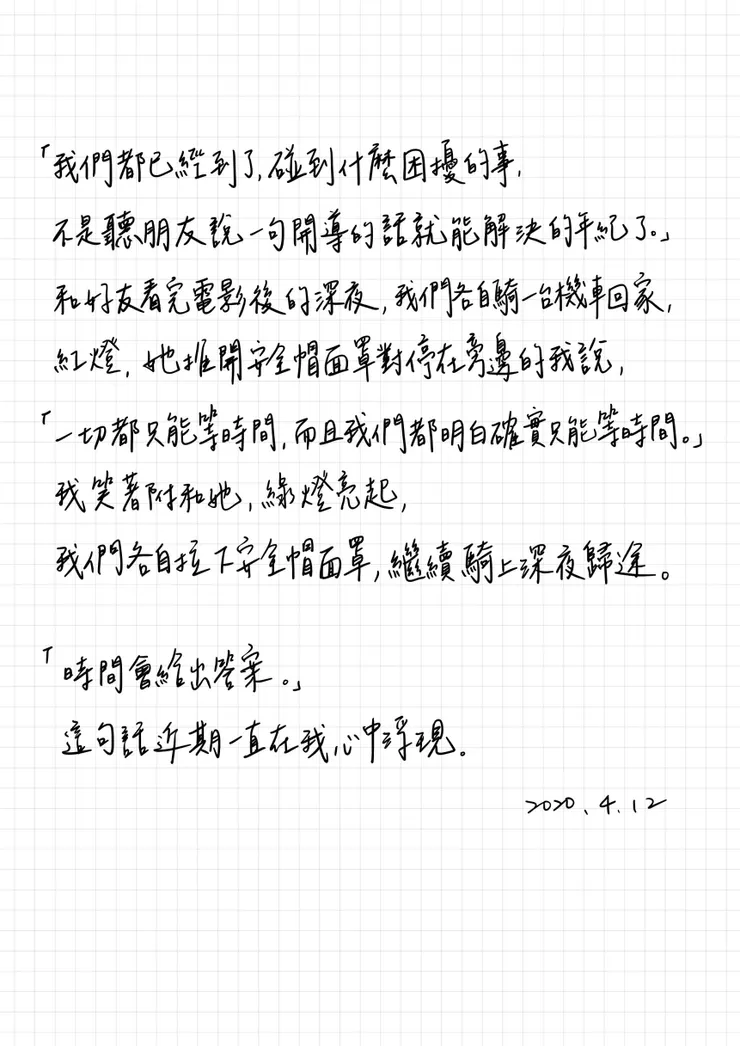 「我們都已經到了,碰到什麼困擾的事,
不是聽朋友說一句開導的話就能解決的年紀了。」
和好友看完電影後的深夜,我們各自騎一台機車回家,
紅燈,她推開安全帽面罩對停在旁邊的我說,
「一切都只能等時間,而且我們都明白確實只能等時間。」
我笑著附和她,綠燈亮起,
我們各自拉下安全帽面罩,繼續騎上深夜歸途。
「時間會給出答案。」
這句話近期一直在我心中浮現。
2020.4.12